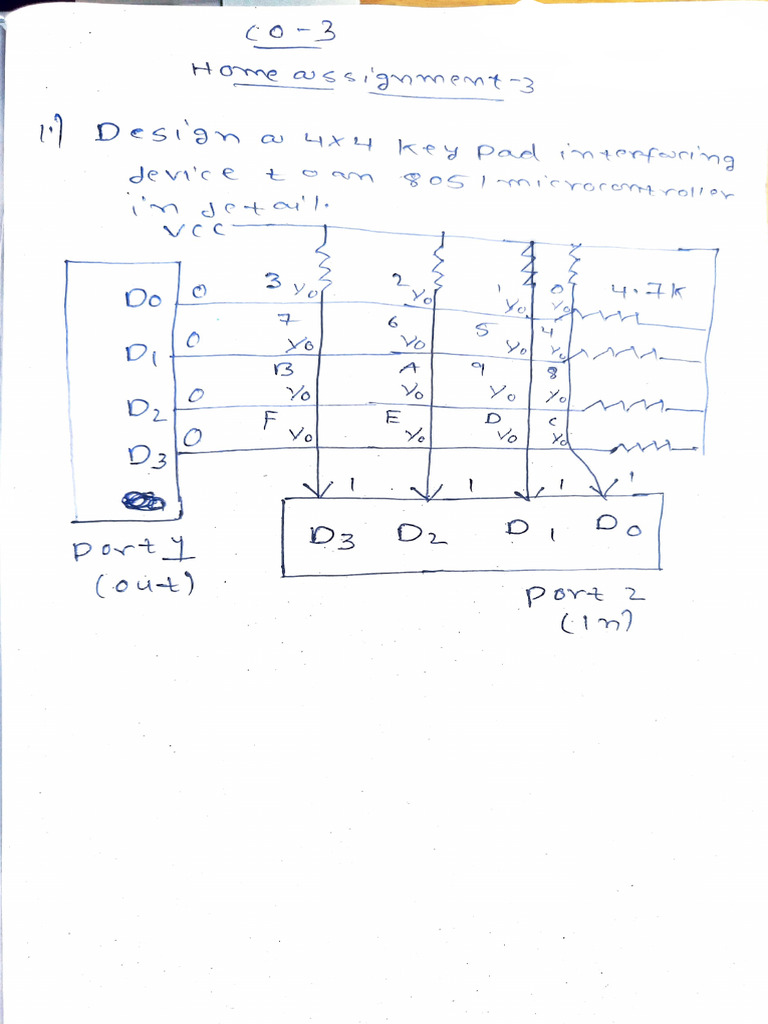 CO-3
Home assignment-3
1.) Design a 4x4 key pad interfacing
device to an 8051 microcontroller
in detail.
VCC
D0 0 3 2 1 0 4.7K
D1 0 7 6 5 4
D2 0 B A 9 8
D3 0 F E D C
1 1 1 1
D3 D2 D1 D0
port 1
(out)
port 2
(In)